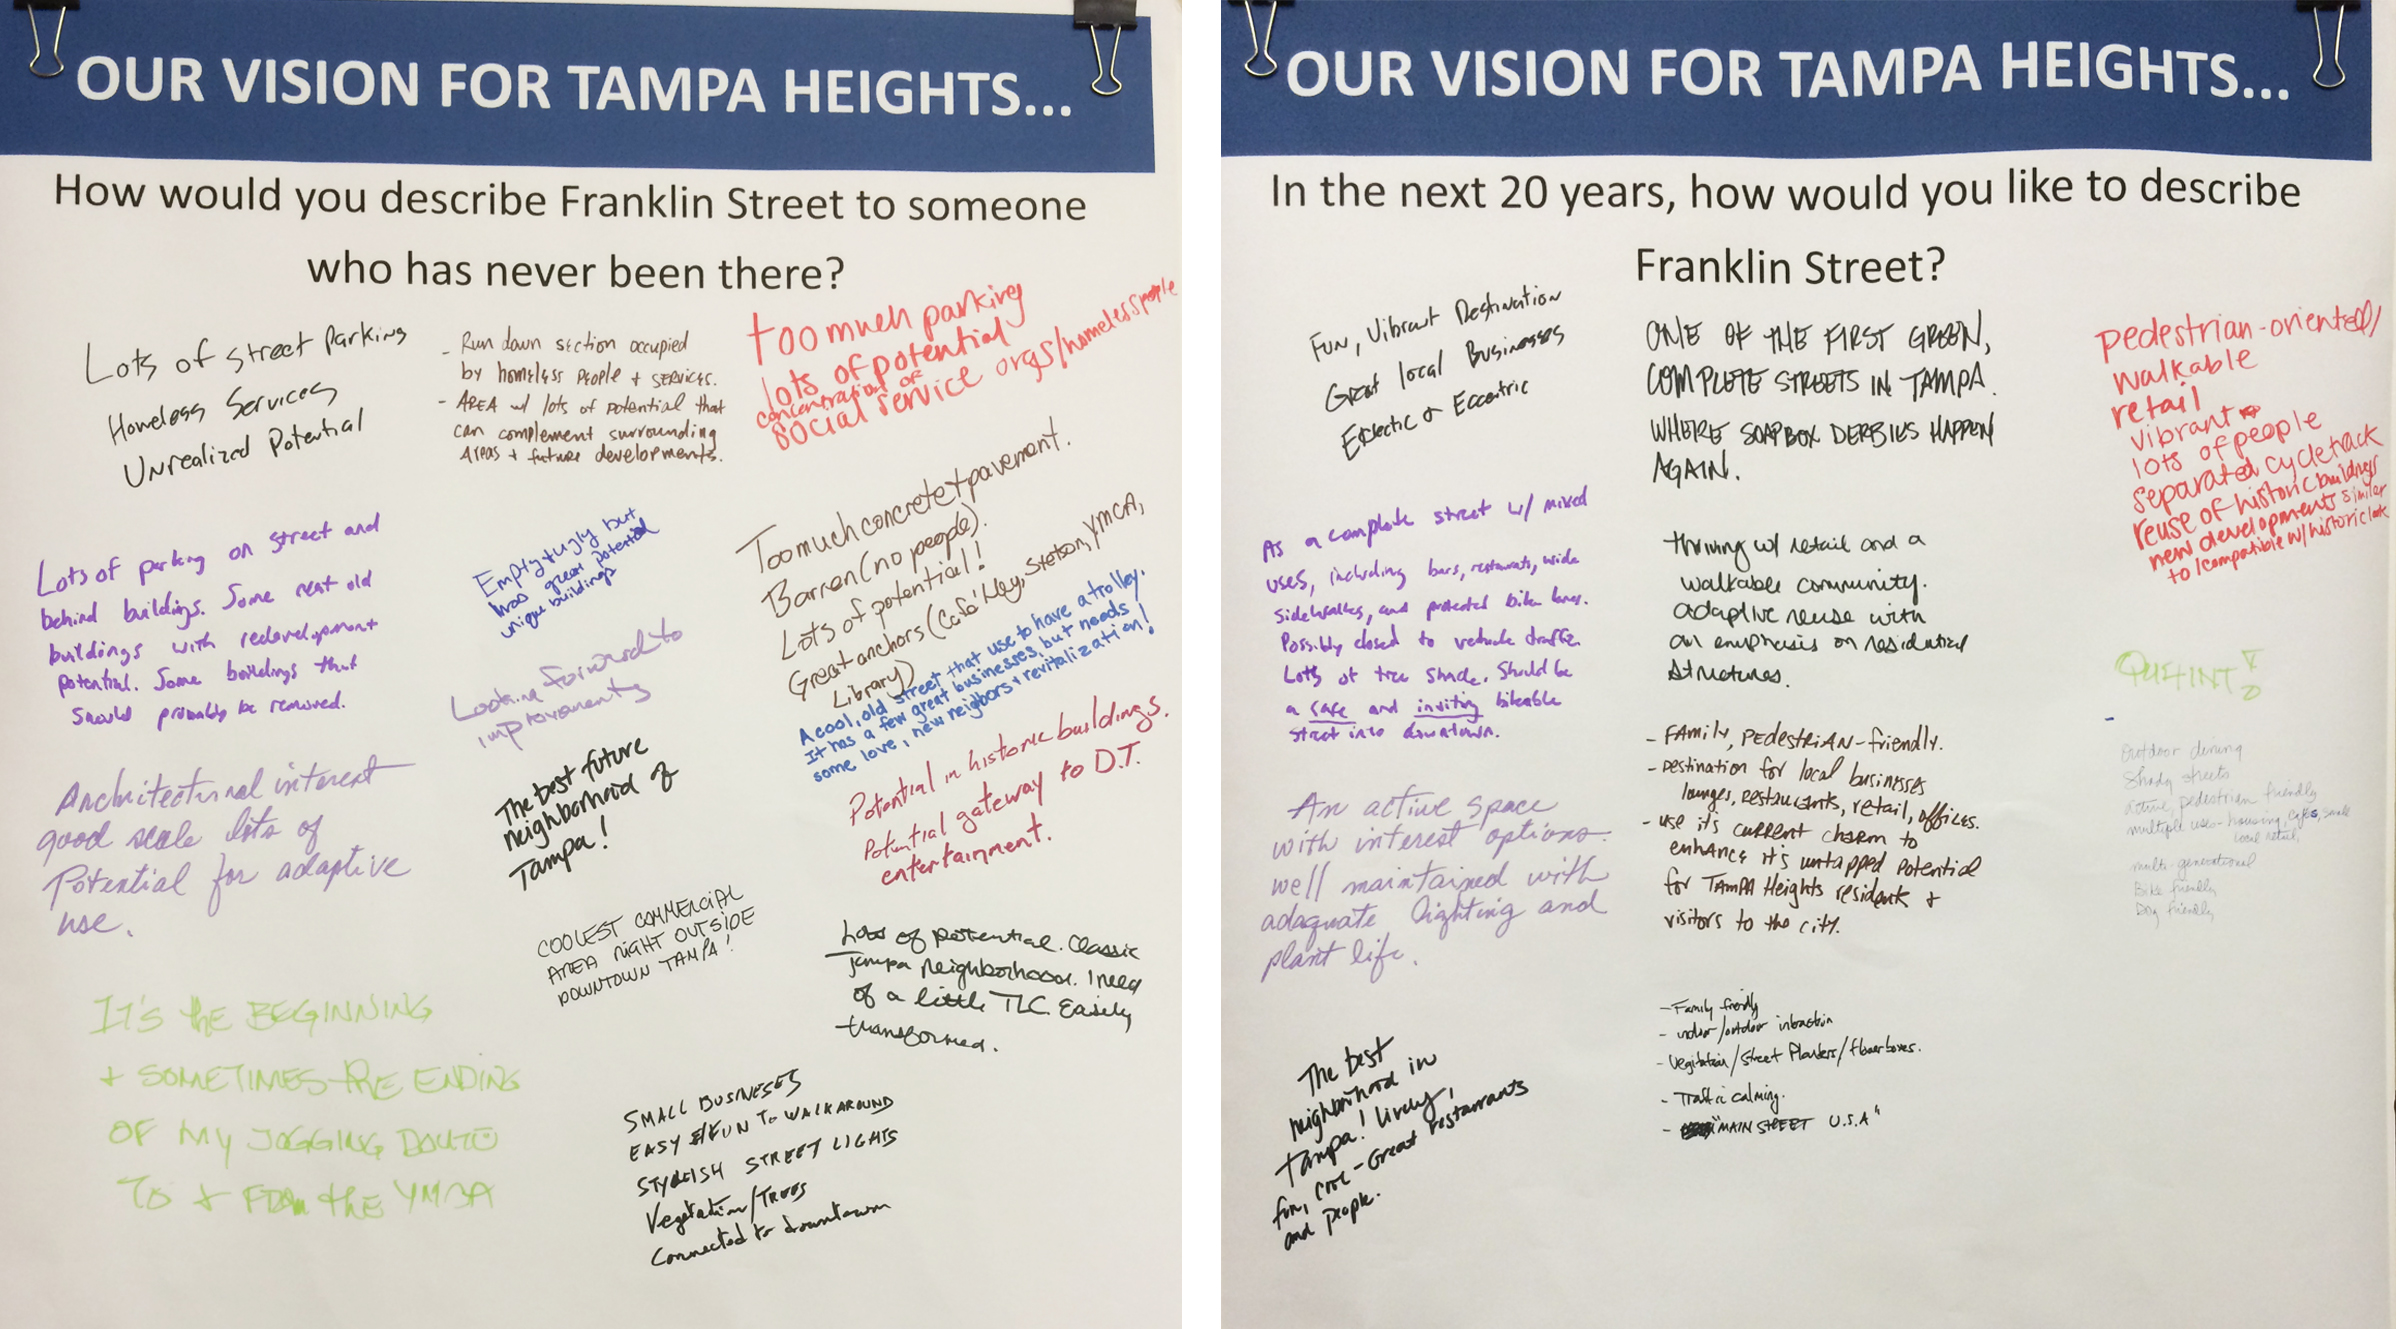 OUR VISION FOR TAMPA HEIGHTS...
How would you describe Franklin Street to someone
who has never been there?
Lots of street parking
Homeless Services
Unrealized Potential
- Run down section occupied
by homeless people + services.
- AREA w/ lots of potential that
can complement surrounding
AREAS + future developments.
too much parking
lots of potential
concentration of
social service orgs/homeless people
Lots of parking on street and
behind buildings. Some neat old
buildings with redevelopment
potential. Some buildings that
should probably be removed.
Empty + ugly but
has great potential
unique buildings
Too much concrete + pavement.
Barren (no people).
Lots of potential!
Great anchors (Café Hey, Stetson, YMCA,
Library)
Looking forward to
improvements
A cool, old street that use to have a trolley.
It has a few great businesses, but needs
some love, new neighbors + revitalization!
Architectural interest
good scale lots of
Potential for adaptive
use.
The best future
neighborhood of
Tampa!
Potential in historic buildings.
Potential gateway to D.T.
entertainment.
COOLEST COMMERCIAL
AREA RIGHT OUTSIDE
DOWNTOWN TAMPA!
Lots of potential. Classic
Tampa Neighborhood. I need
of a little TLC. Easily
transformed.
IT'S the BEGINNING
+ SOMETIMES THE ENDING
OF MY JOGGING
TO + FROM the YMCA
SMALL BUSINESES
EASY & FUN TO WALK AROUND
STYLISH STREET LIGHTS
Vegetation/Trees
Connected to downtown
OUR VISION FOR TAMPA HEIGHTS...
In the next 20 years, how would you like to describe
Franklin Street?
Fun, Vibrant Destination
Great local Businesses
Eclectic & Eccentric
ONE OF THE FIRST GREEN,
COMPLETE STREETS IN TAMPA.
WHERE SOAPBOX DERBIES HAPPEN
AGAIN.
pedestrian-oriented/
walkable
retail
vibrant
lots of people
separated cycletrack
reuse of historic buildings
new developments similar
to/compatible w/historic look
As a complete street w/ mixed
uses, including bars, restaurants, wide
sidewalks, and protected bike lanes.
Possibly closed to vehicle traffic.
Lots of tree shade. Should be
a safe and inviting bikeable
street into downtown.
thriving w/ retail and a
walkable community.
adaptive reuse with
an emphasis on residential
structures.
QUAINT!
- FAmily, PEdestriAN-friendly.
- Destination for local businesses
lounges, restaurants, retail, offices.
- use it's current charm to
enhance it's untapped potential
for TAMPA Heights residents +
visitors to the city.
Outdoor dining
Shady streets
active, pedestrian friendly
multiple uses - housing, cafes, small
local retail,
multi-generational
Bike friendly
Dog friendly
An active space
with interest options.
well maintained with
adaquate lighting and
plant life.
- Family friendly
- indoor/outdoor
- Vegitation/Street Planters/flowerboxes.
- Traffic calming.
- "MAIN STREET U.S.A"
The best
neighborhood in
Tampa! Lively,
fun, cool - Great restaurants
and people.